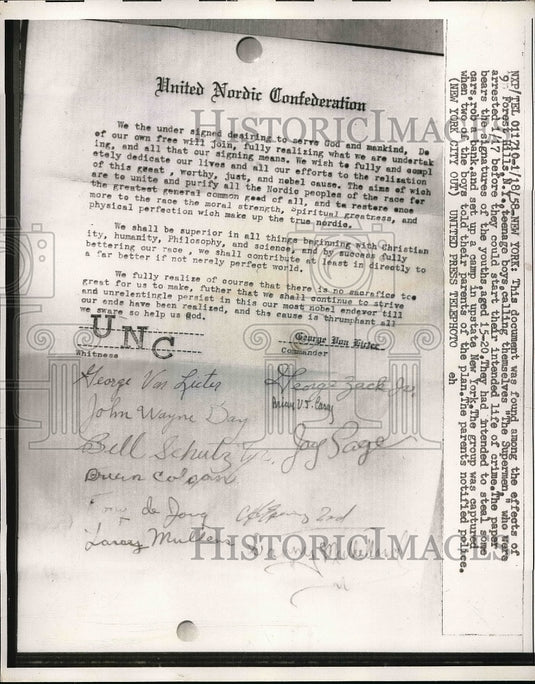 United Nordic Confederation
We the under signed desiring to serve God and mankind, De
of our own free will join, fully realizing what we are undertak
ing, and all that our signing means. We wish to fully and compl
etely dedicate our lives and all our efforts to the relization
of this great , worthy, just, and nobel cause. The aims of wich
are to unite and purify all the Nordic peoples of the race for
the greatest general common good of all, and to restore once
more to the race the moral strength, Spiritual greatness, and
physical perfection wich make up the true nordic.
We shall be superior in all things beginning with Christian
ity, humanity, Philosophy, and science, and by success fully
bettering our race , we shall contribute at least in directly to
a far better if not merely perfect world.
We fully realize of course that there is no sacrifice toe
great for us to make, futher that we shall continue to strive
and unrelentingle persist in this our most nobel endevor till
our ends have been realized, and the cause is thrumphant all
we sware so help us God.
UNC
Whitness
George Van Lieter
Commander
George Van Lieter
George Zack Jr.
John Wayne Day
Brian V.J. Carey
Bill Schutz Jr.
Jay Page
Owen Colgan
Tony de Jong
2nd
Larrey Mullens
HISTORIC IMAGES
HISTORIC IMAGES
NXP/TEL011710-1/18/58-NEW YORK: This document was found among the effects of
9 Forest Hills, N.Y. teenage boys, calling themselves "The Supermen," who were
arrested 1/17 before they could start their intended life of crime. The paper
bears the signatures of the youths, aged 15-20. They had intended to steal some
cars, rob a bank, and set up a camp in upstate New York. The group was captured
when two of the boys told their parents of the plan. The parents notified police.
(NEW YORK CITY OUT) UNITED PRESS TELEPHOTO eh